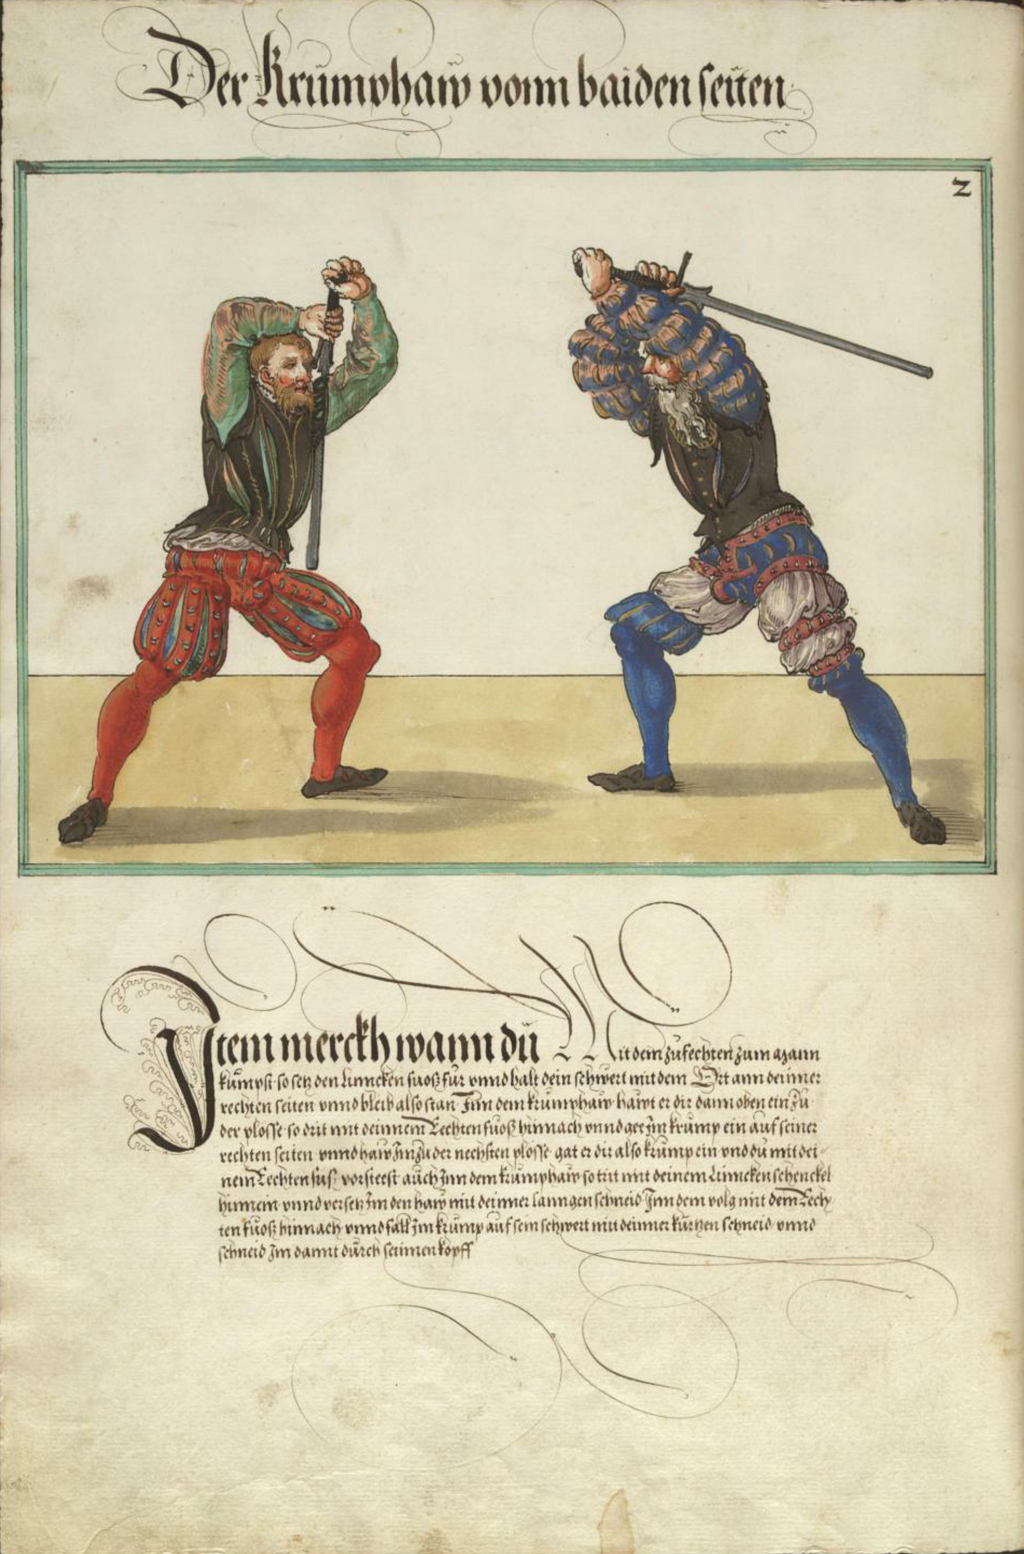 Der Krumphaw vonn baiden seiten
2
Item merckh wann du Mit dem zufechten zum Mann
kumpst so setz den Linncken fuosz für vnnd halt dein schwert mit dem Ort ann deinner
rechten seiten vnnd bleib also stan Inn dem krumphaw hawt er dir dann oben ein zu
der plosse so drit mit deinnem Rechten fuosz hinnach vnnd gee Im krump ein auf seiner
rechten seiten vnnd haw Im zu der nechsten plosse gat er dir also krump ein vnd du mit dei-
nem Rechten fus vorsteest auch Inn dem krumphaw so trit mit deinem Linncken schenckel
hinnein vnnd versetz Im den haw mit deinner lanngen schneid Inn dem volg mit dem Rech
ten fuosz hinnach vnnd fall Im krump auf sein schwert mit deinner kurtzen schneid vnnd
schneid Im damit durch seinnen kopff